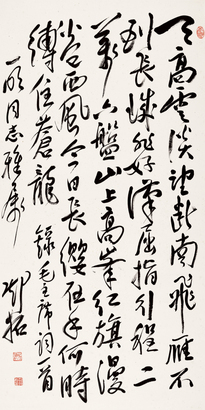 天高雲淡望斷南飛雁不
到長城非好漢屈指行程二
萬六盤山上高峯紅旗漫
卷西風今日長纓在手何時
縛住蒼龍 錄毛主席詞一首
同志雅屬 鄧拓